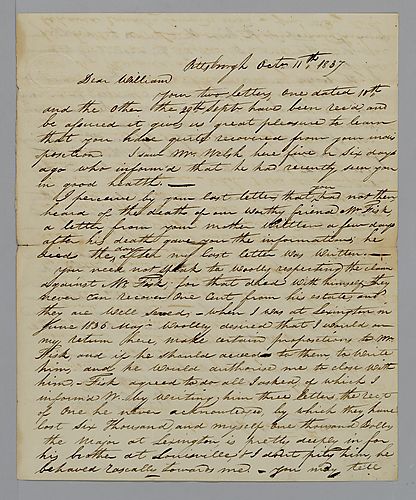 Pittsburgh Octr 11th 1837
Dear William
Your two letters one dated 18th
and the other the 29th Sept have been recd and
be assured it gives us great pleasure to learn
that you have quite recovered from your indis
position. I saw Mr. Welsh here five or six days
ago who informd that he had recently seen you
in good health. —
I perceive by your last letter that you had not then
heard of the death of our worthy friend Mr Fisk
a letter from your mother written a few days
after his death gave you the information; he
died the day after my last letter was written —
You need not speak to Woolley respecting the claim
against Mr Fisk; for that died with himself, they
never can recover one cent from his estate, and
they are well served, — when I was at Lexington in
June 1836 Majr Woolley desired that I would on
my return here make certain propositions to Mr
Fisk and if he should accede to them, to write
him, and he would authorise me to close with
him — Fisk agreed to do all I asked of which I
informd W. by writing him three letters the rect
of one he never acknowledged, by which they have
lost Six Thousand and myself One thousand Dolls,
the Major at Lexington is pretty deeply in for
his brother at Louisville & I dont pity him, he
behaved rascally towards me — you may tell